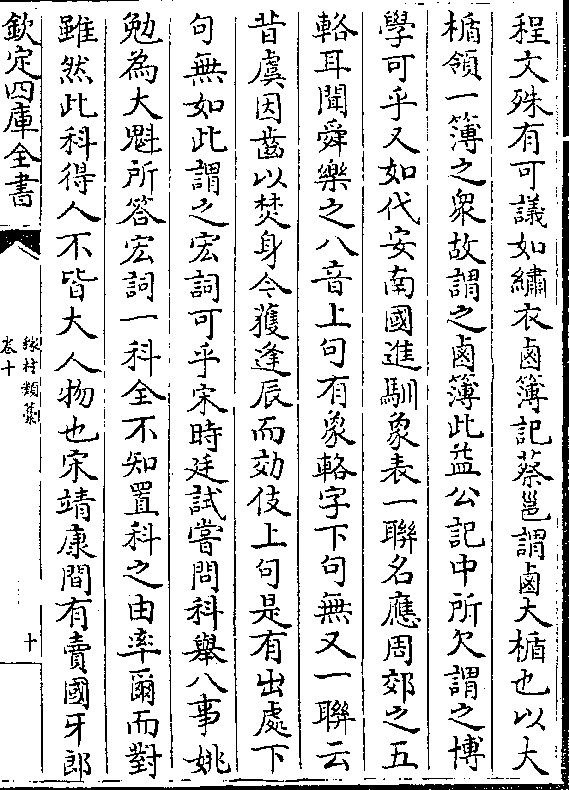 程文殊有可議如繡衣鹵簿記蔡邕謂鹵大楯也以大
楯領一簿之衆故謂之鹵簿此益公記中所欠謂之博
學可乎又如代安南國進馴象表一聯名應周郊之五
輅耳聞舜樂之八音上句有象輅字下句無又一聯云
昔虞因齒以焚身今獲逢辰而効伎上句是有出處下
句無如此謂之宏詞可乎宋時廷試嘗問科舉八事姚
勉為大魁所答宏詞一科全不知置科之由率爾而對
雖然此科得人不皆大人物也宋靖康間有賣國牙郎
欽定四庫全書
稼村類藁
卷十
十